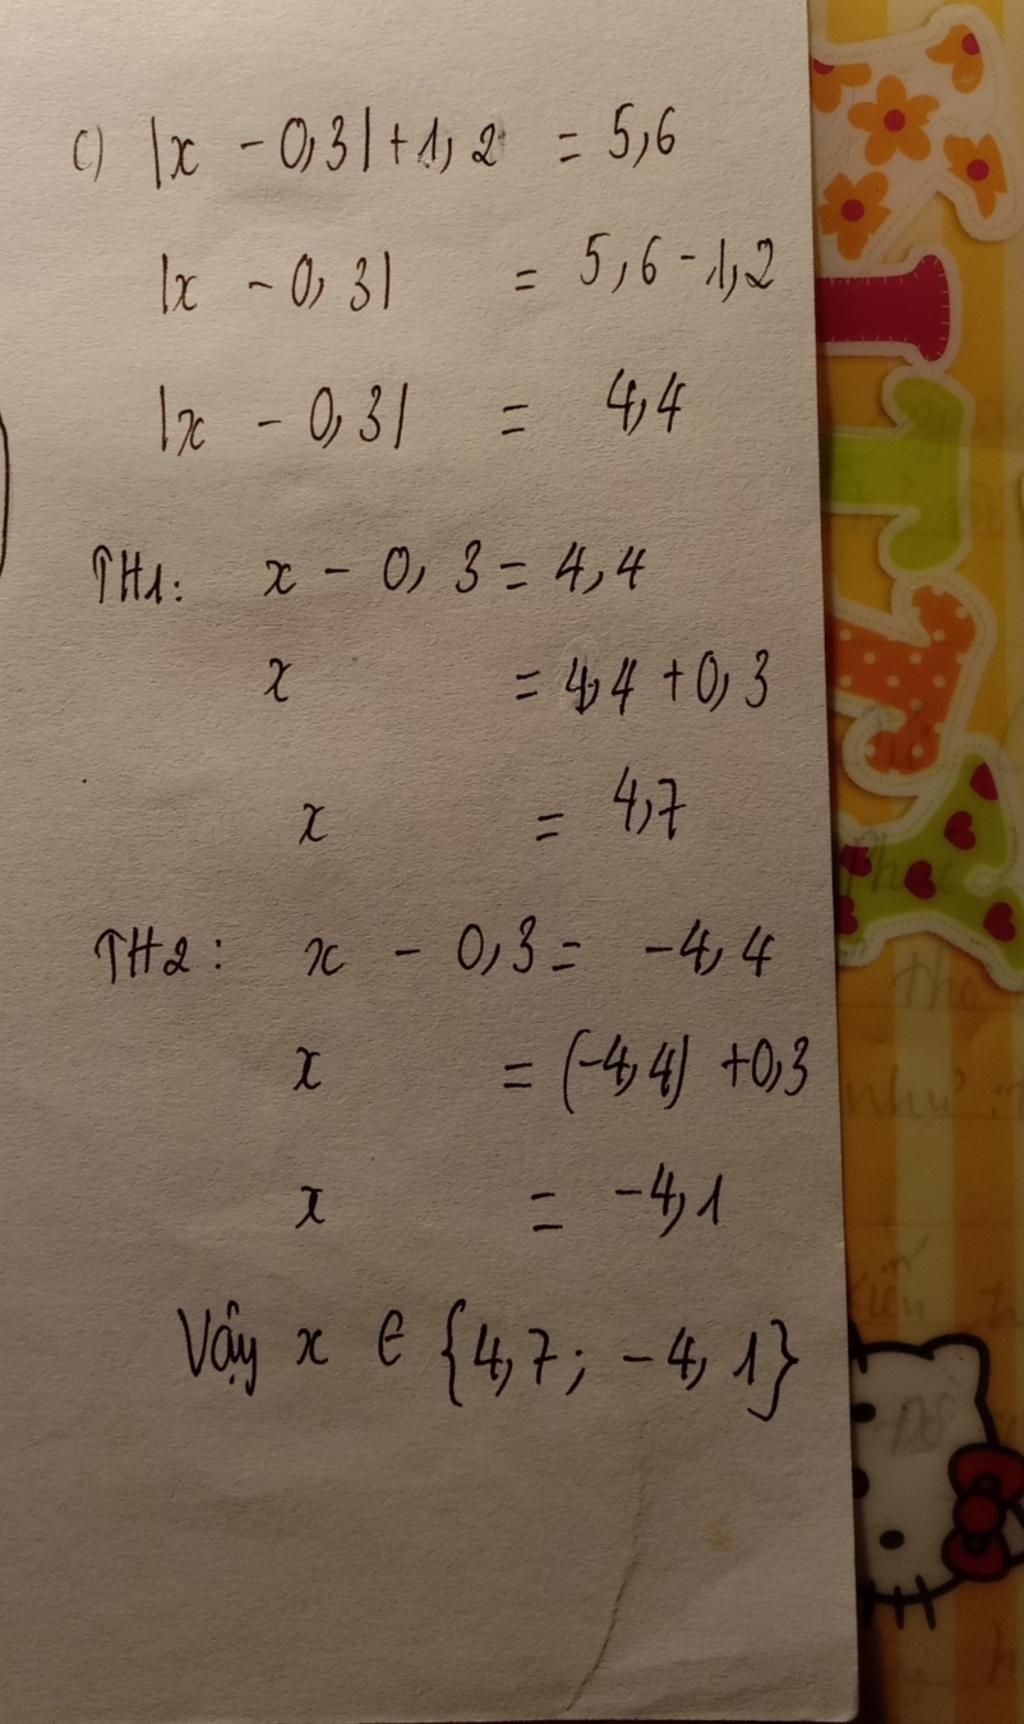 c) |x - 0,3| + 1,2 = 5,6
|x - 0,3| = 5,6 - 1,2
|x - 0,3| = 4,4
TH1: x - 0,3 = 4,4
x = 4,4 + 0,3
x = 4,7
TH2: x - 0,3 = -4,4
x = (-4,4) + 0,3
x = -4,1
Vậy x ∈ {4,7; -4,1}